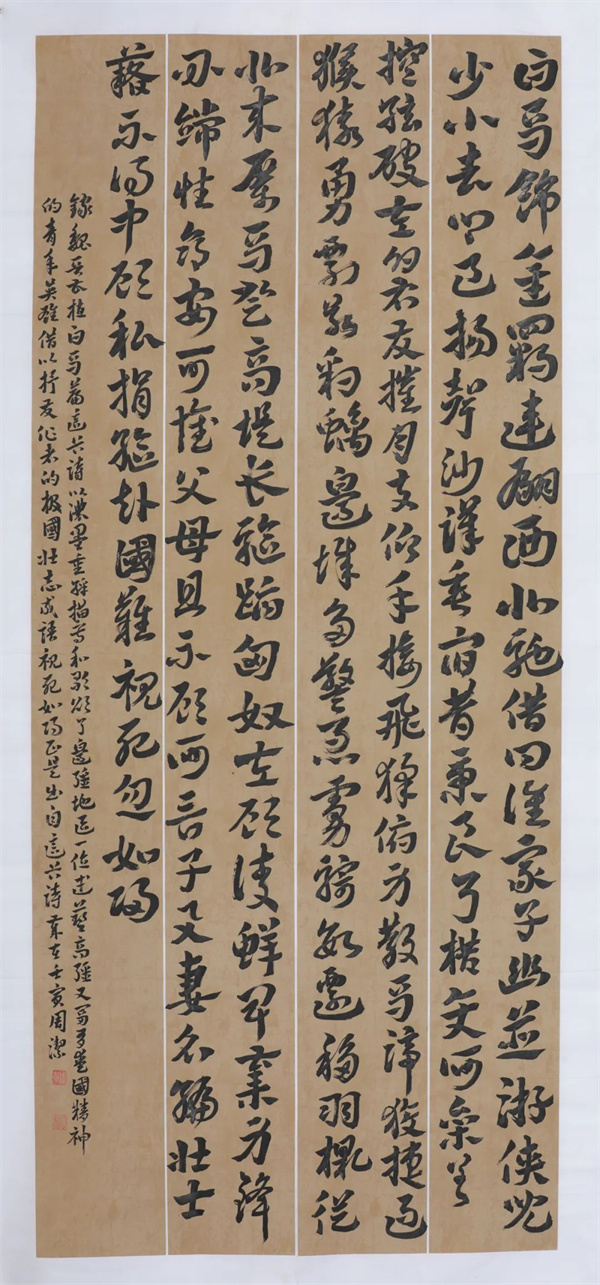 白馬飾金羈連翩西北馳借问誰家子幽並游俠兒
少小去鄉邑揚聲沙漠垂宿昔秉良弓楛矢何參差
控弦破左的右发摧月支仰手接飛猱俯身散馬蹄狡捷過
猴猿勇剽若豹螭邊城多警急虜騎數遷移羽檄從
北来厲馬登高堤长驅蹈匈奴左顧凌鮮卑棄身鋒
刃端性命安可懷父母且不顧何言子与妻名編壮士
籍不得中顧私捐軀赴國難視死忽如歸
錄魏曹植白馬篇這首詩以濃墨重彩描寫和歌頌了邊疆地區一位武藝高強又富有愛國精神
的青年英雄借以抒发作者的报國壮志成語視死如歸正是出自這首詩歲在壬寅周潔